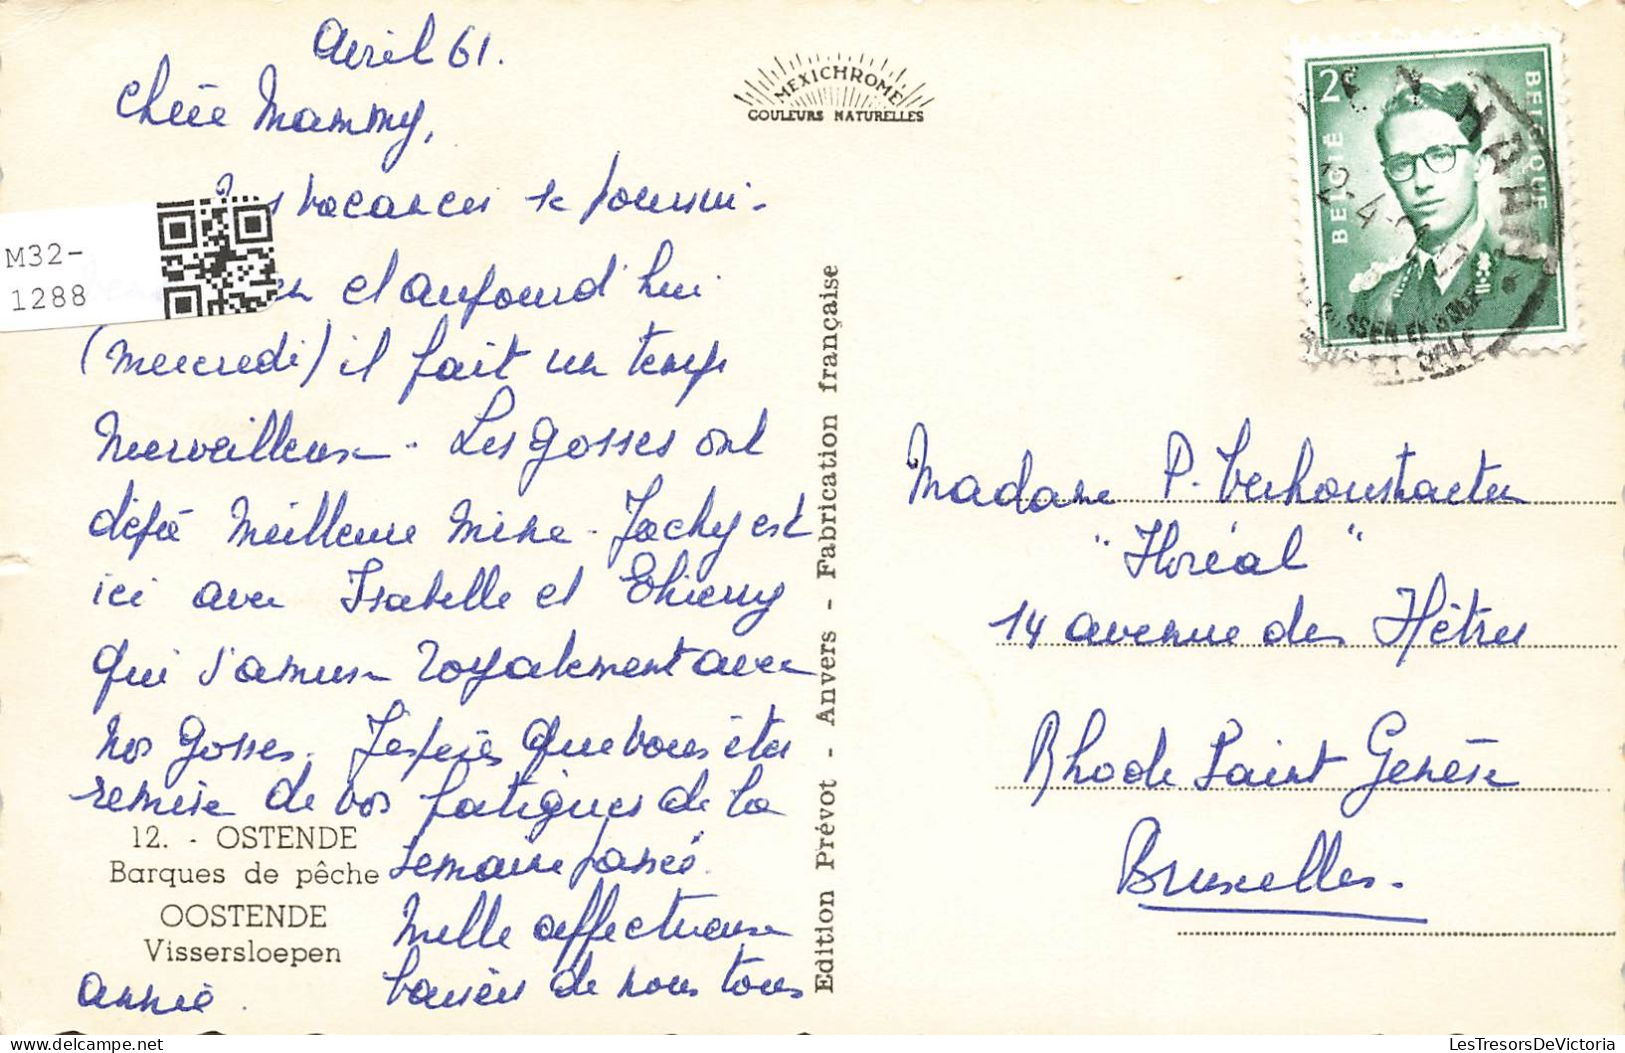 Avril 61.
Chère Mammy,
vacances se poursui-
et aujourd'hui
(mercredi) il fait un temps
merveilleux. Les gosses ont
déjà meilleure mine. Jacky est
ici avec Isabelle et Thierry
qui s'amuse royalement avec
nos gosses. J'espère que vous êtes
remise de vos fatigues de la
semaine passée.
Mille affectueux
baisers de nous tous
Annie.
12. - OSTENDE
Barques de pêche
OOSTENDE
Vissersloepen
M32-
1288
MEXICHROME
COULEURS NATURELLES
Edition Prévot - Anvers - Fabrication française
2
BELGIË
BELGIQUE
Madame P. Verhoustraeten
"Floréal"
14 avenue des Hêtres
Rhode Saint Genèse
Bruxelles.
LesTresorsDeVictoria